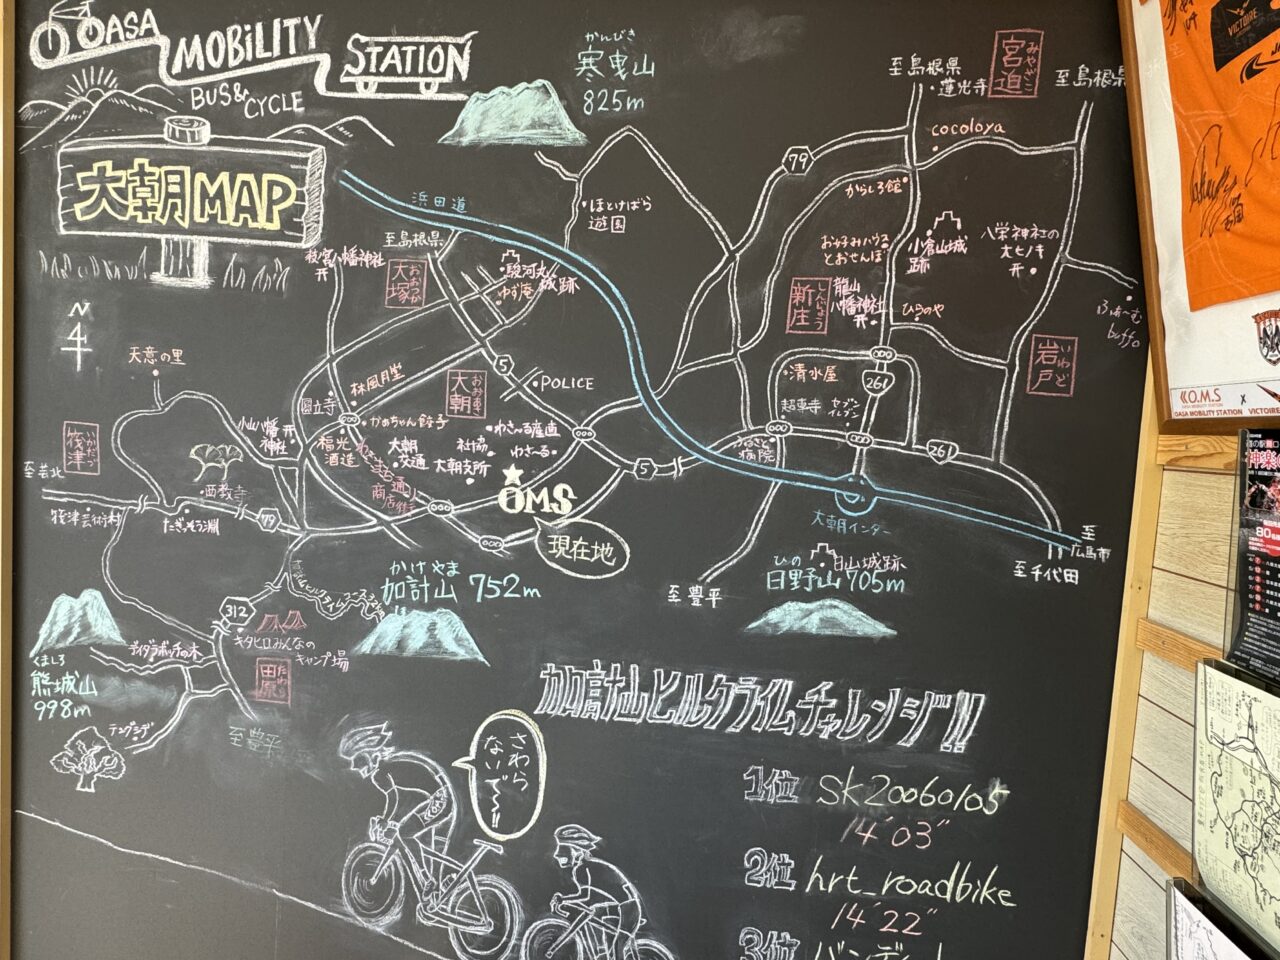 OASA
MOBILITY
STATION
BUS & CYCLE
大朝MAP
かんびき
寒曳山
825m
至島根県
蓮光寺
みやざこ
宮迫
至島根県
cocoloya
79
からしろ館
浜田道
ほとけばら
遊園
至島根県
枝宮八幡神社
おおつか
大塚
駿河丸
城跡
ゆず庵
お好みハウス
とおせんぼ
小倉山城
跡
八栄神社の
大ヒノキ
しんじょう
新庄
龍山
八幡神社
ひらのや
ふぁ〜む
buffo
いわど
岩戸
N
天意の里
林風月堂
圓立寺
おおあさ
大朝
5
POLICE
清水屋
261
超専寺
セブン
イレブン
かめちゃん餃子
小山八幡
神社
福光
酒造
大朝
交通
社協
大朝支所
わさ〜る産直
わさ〜る
商店街
ふるさと
病院
5
261
いかだつ
筏津
至若北
西教寺
筏津芸術村
たきっそう淵
79
OMS
現在地
大朝インター
至
広島市
至千代田
至豊平
かけやま
加計山 752m
ひの
日野山 705m
日山城跡
312
キタヒロみんなの
キャンプ場
田原
くましろ
熊城山
998m
ダイダラボッチの木
テングシデ
至豊平
加計山ヒルクライムチャレンジ!!
さわら
ないで〜!!
1位 sk20060105
14'03"
2位 hrt_roadbike
14'22"
3位
VICTOIRE
O.M.S
OASA MOBILITY STATION
×